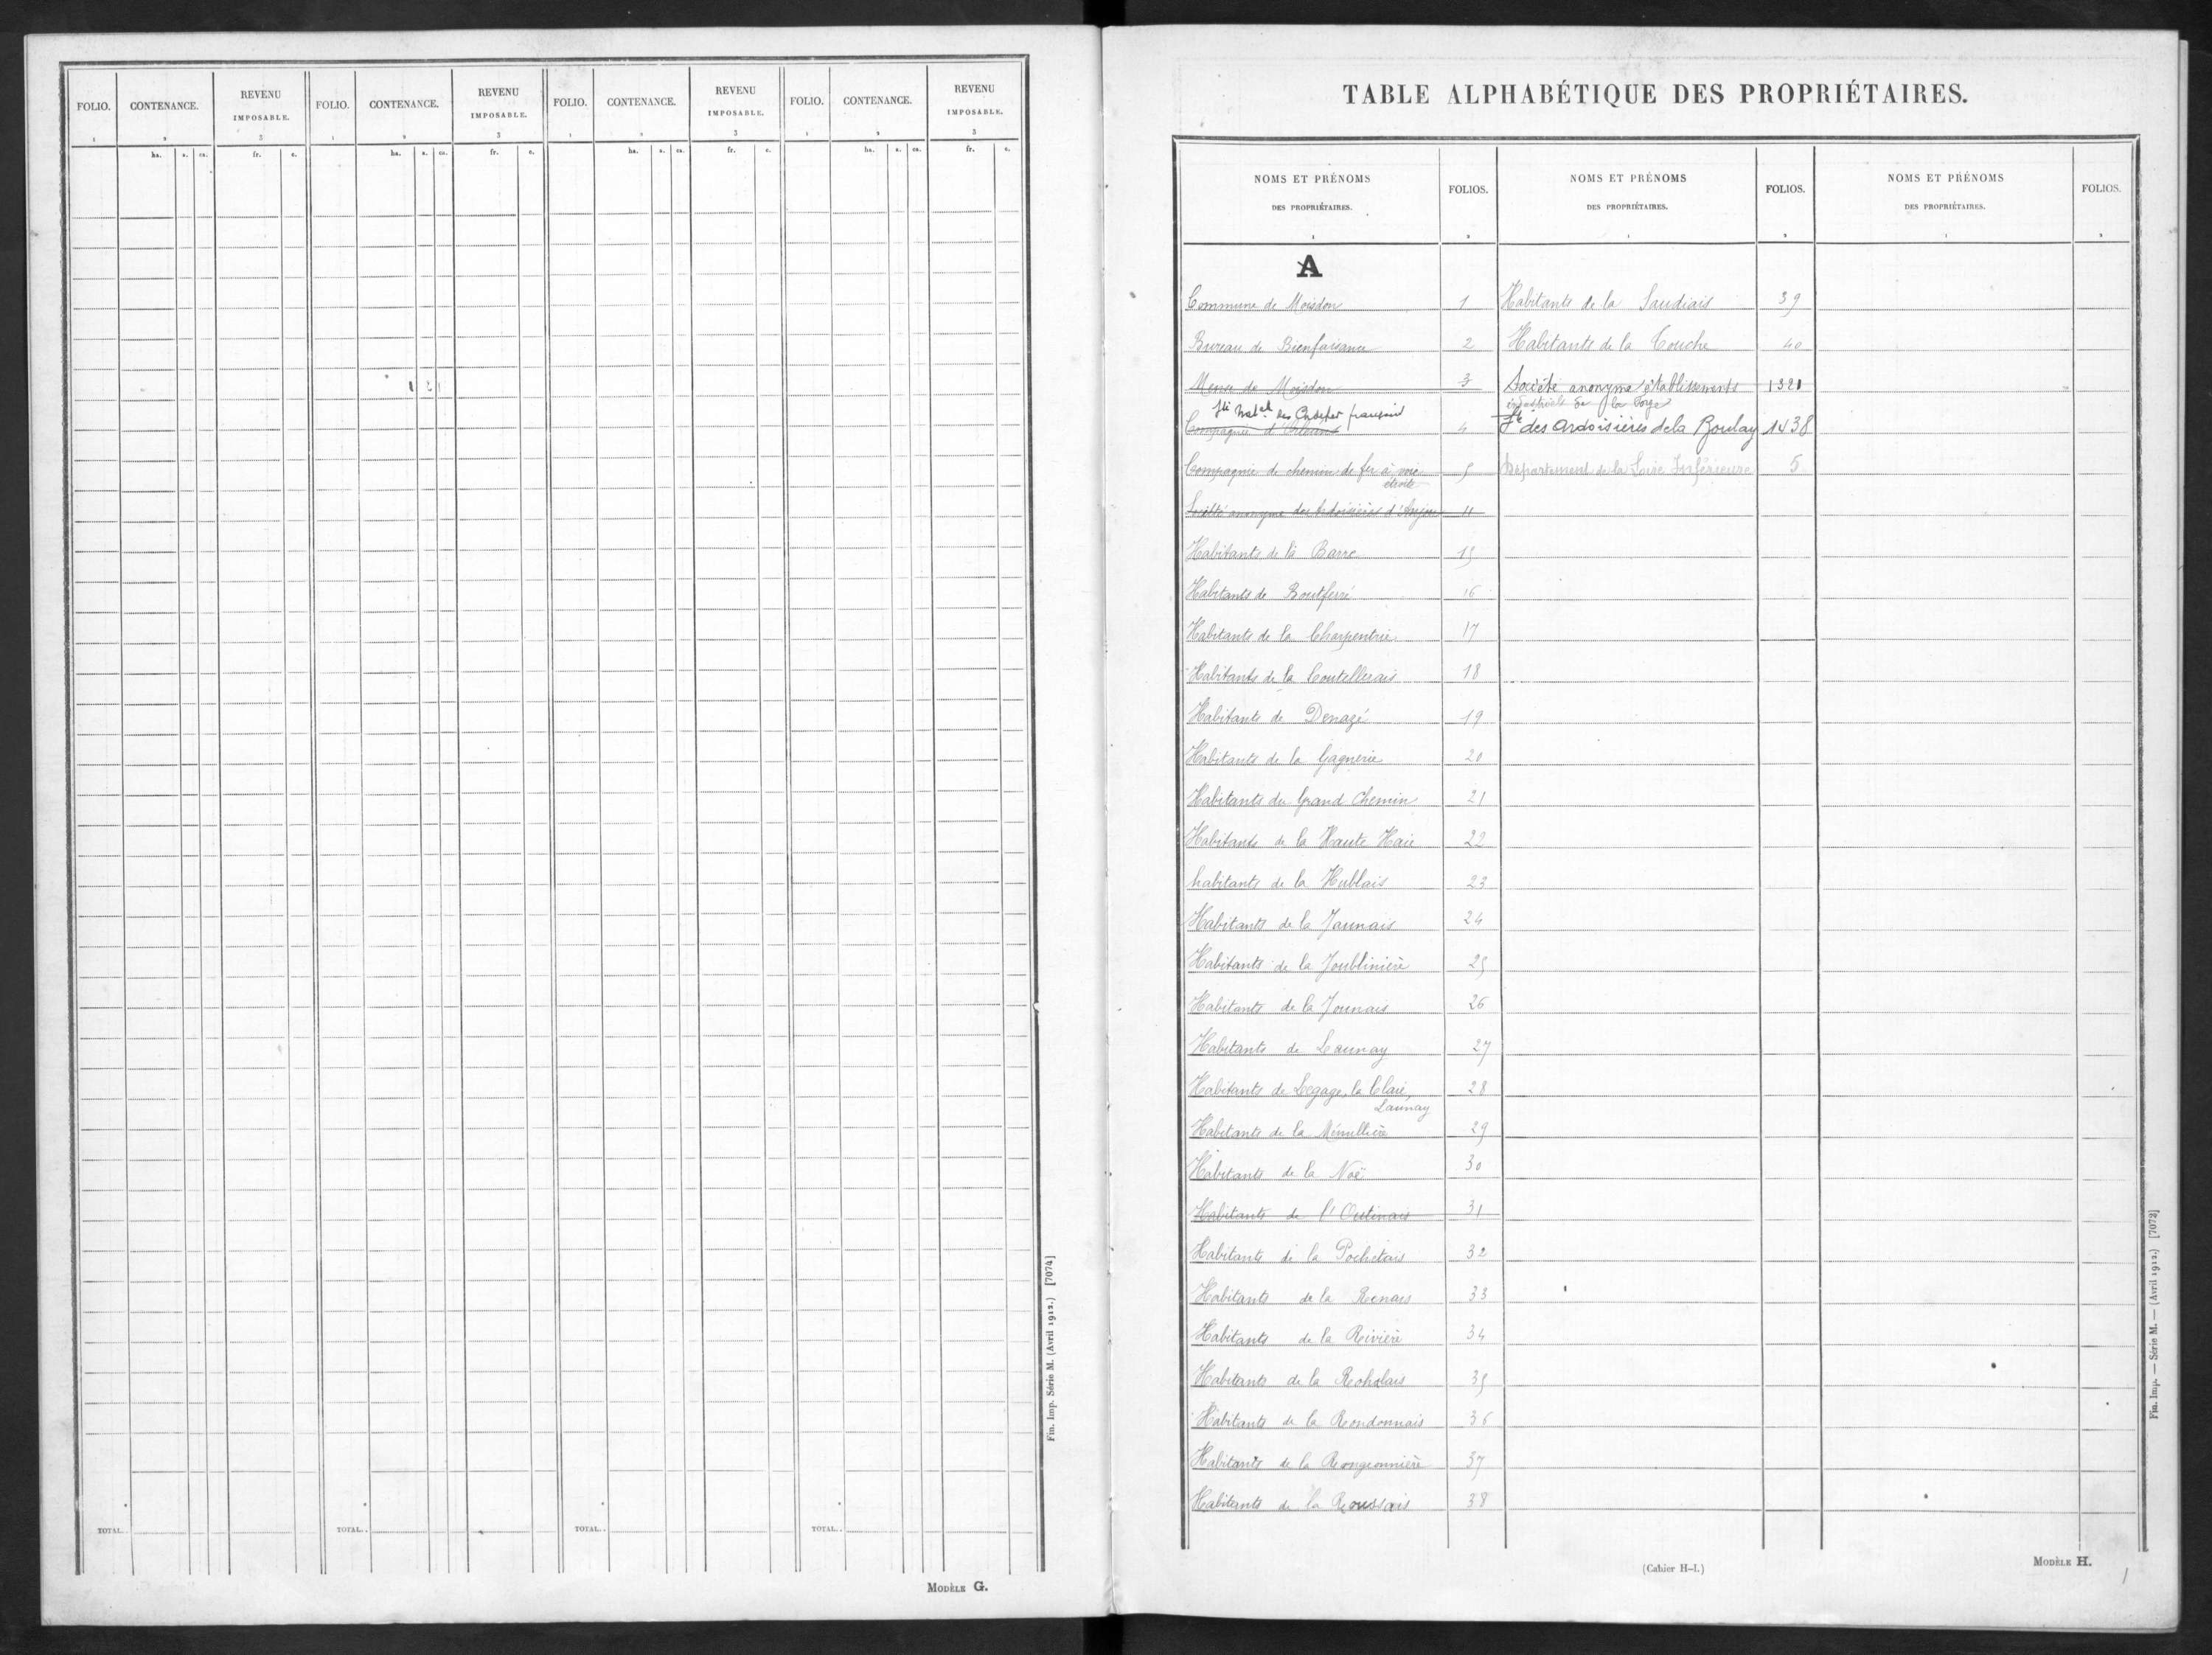 FOLIO. CONTENANCE. REVENU IMPOSABLE. FOLIO. CONTENANCE. REVENU IMPOSABLE. FOLIO. CONTENANCE. REVENU IMPOSABLE. FOLIO. CONTENANCE. REVENU IMPOSABLE.
1 2 3 1 2 3 1 2 3 1 2 3
ha. a. ca. fr. c. ha. a. ca. fr. c. ha. a. ca. fr. c. ha. a. ca. fr. c.
TOTAL.. TOTAL.. TOTAL.. TOTAL..
Fin. Imp. Série M. (Avril 1912.) [7074]
MODÈLE G.
TABLE ALPHABÉTIQUE DES PROPRIÉTAIRES.
NOMS ET PRÉNOMS DES PROPRIÉTAIRES. FOLIOS. NOMS ET PRÉNOMS DES PROPRIÉTAIRES. FOLIOS. NOMS ET PRÉNOMS DES PROPRIÉTAIRES. FOLIOS.
1 2 1 2 1 2
A
Commune de Moisdon 1
Bureau de Bienfaisance 2
Mense de Moisdon 3
Sté Natale des Ch de fer français
Compagnie d'Orléans 4
Compagnie de chemin de fer à voie
étroite 5
Société anonyme des Ardoisières d'Anjou 11
Habitants de la Barre 15
Habitants de Boutferré 16
Habitants de la Charpentrie 17
Habitants de la Coutellerais 18
Habitants de Denazé 19
Habitants de la Gagnerie 20
Habitants du Grand Chemin 21
Habitants de la Haute Haie 22
habitants de la Hublais 23
Habitants de la Jaunais 24
Habitants de la Joublinière 25
Habitants de la Jounais 26
Habitants de Launay 27
Habitants de Legage, la Claie,
Launay 28
Habitants de la Ménullière 29
Habitants de la Noë 30
Habitants de l'Oestinais 31
Habitants de la Pochetais 32
Habitants de la Renais 33
Habitants de la Rivière 34
Habitants de la Roholais 35
Habitants de la Rondonnais 36
Habitants de la Rongeonnière 37
Habitants de la Roussais 38
Habitants de la Saudiais 39
Habitants de la Touche 40
Société anonyme établissements 1321
industriels de la Forge
Sté des Ardoisières de la Roulay 1438
Département de la Loire Inférieure 5
(Cahier H-I.)
MODÈLE H.
1
Fin. Imp. — Série M. — (Avril 1912.) [7073]